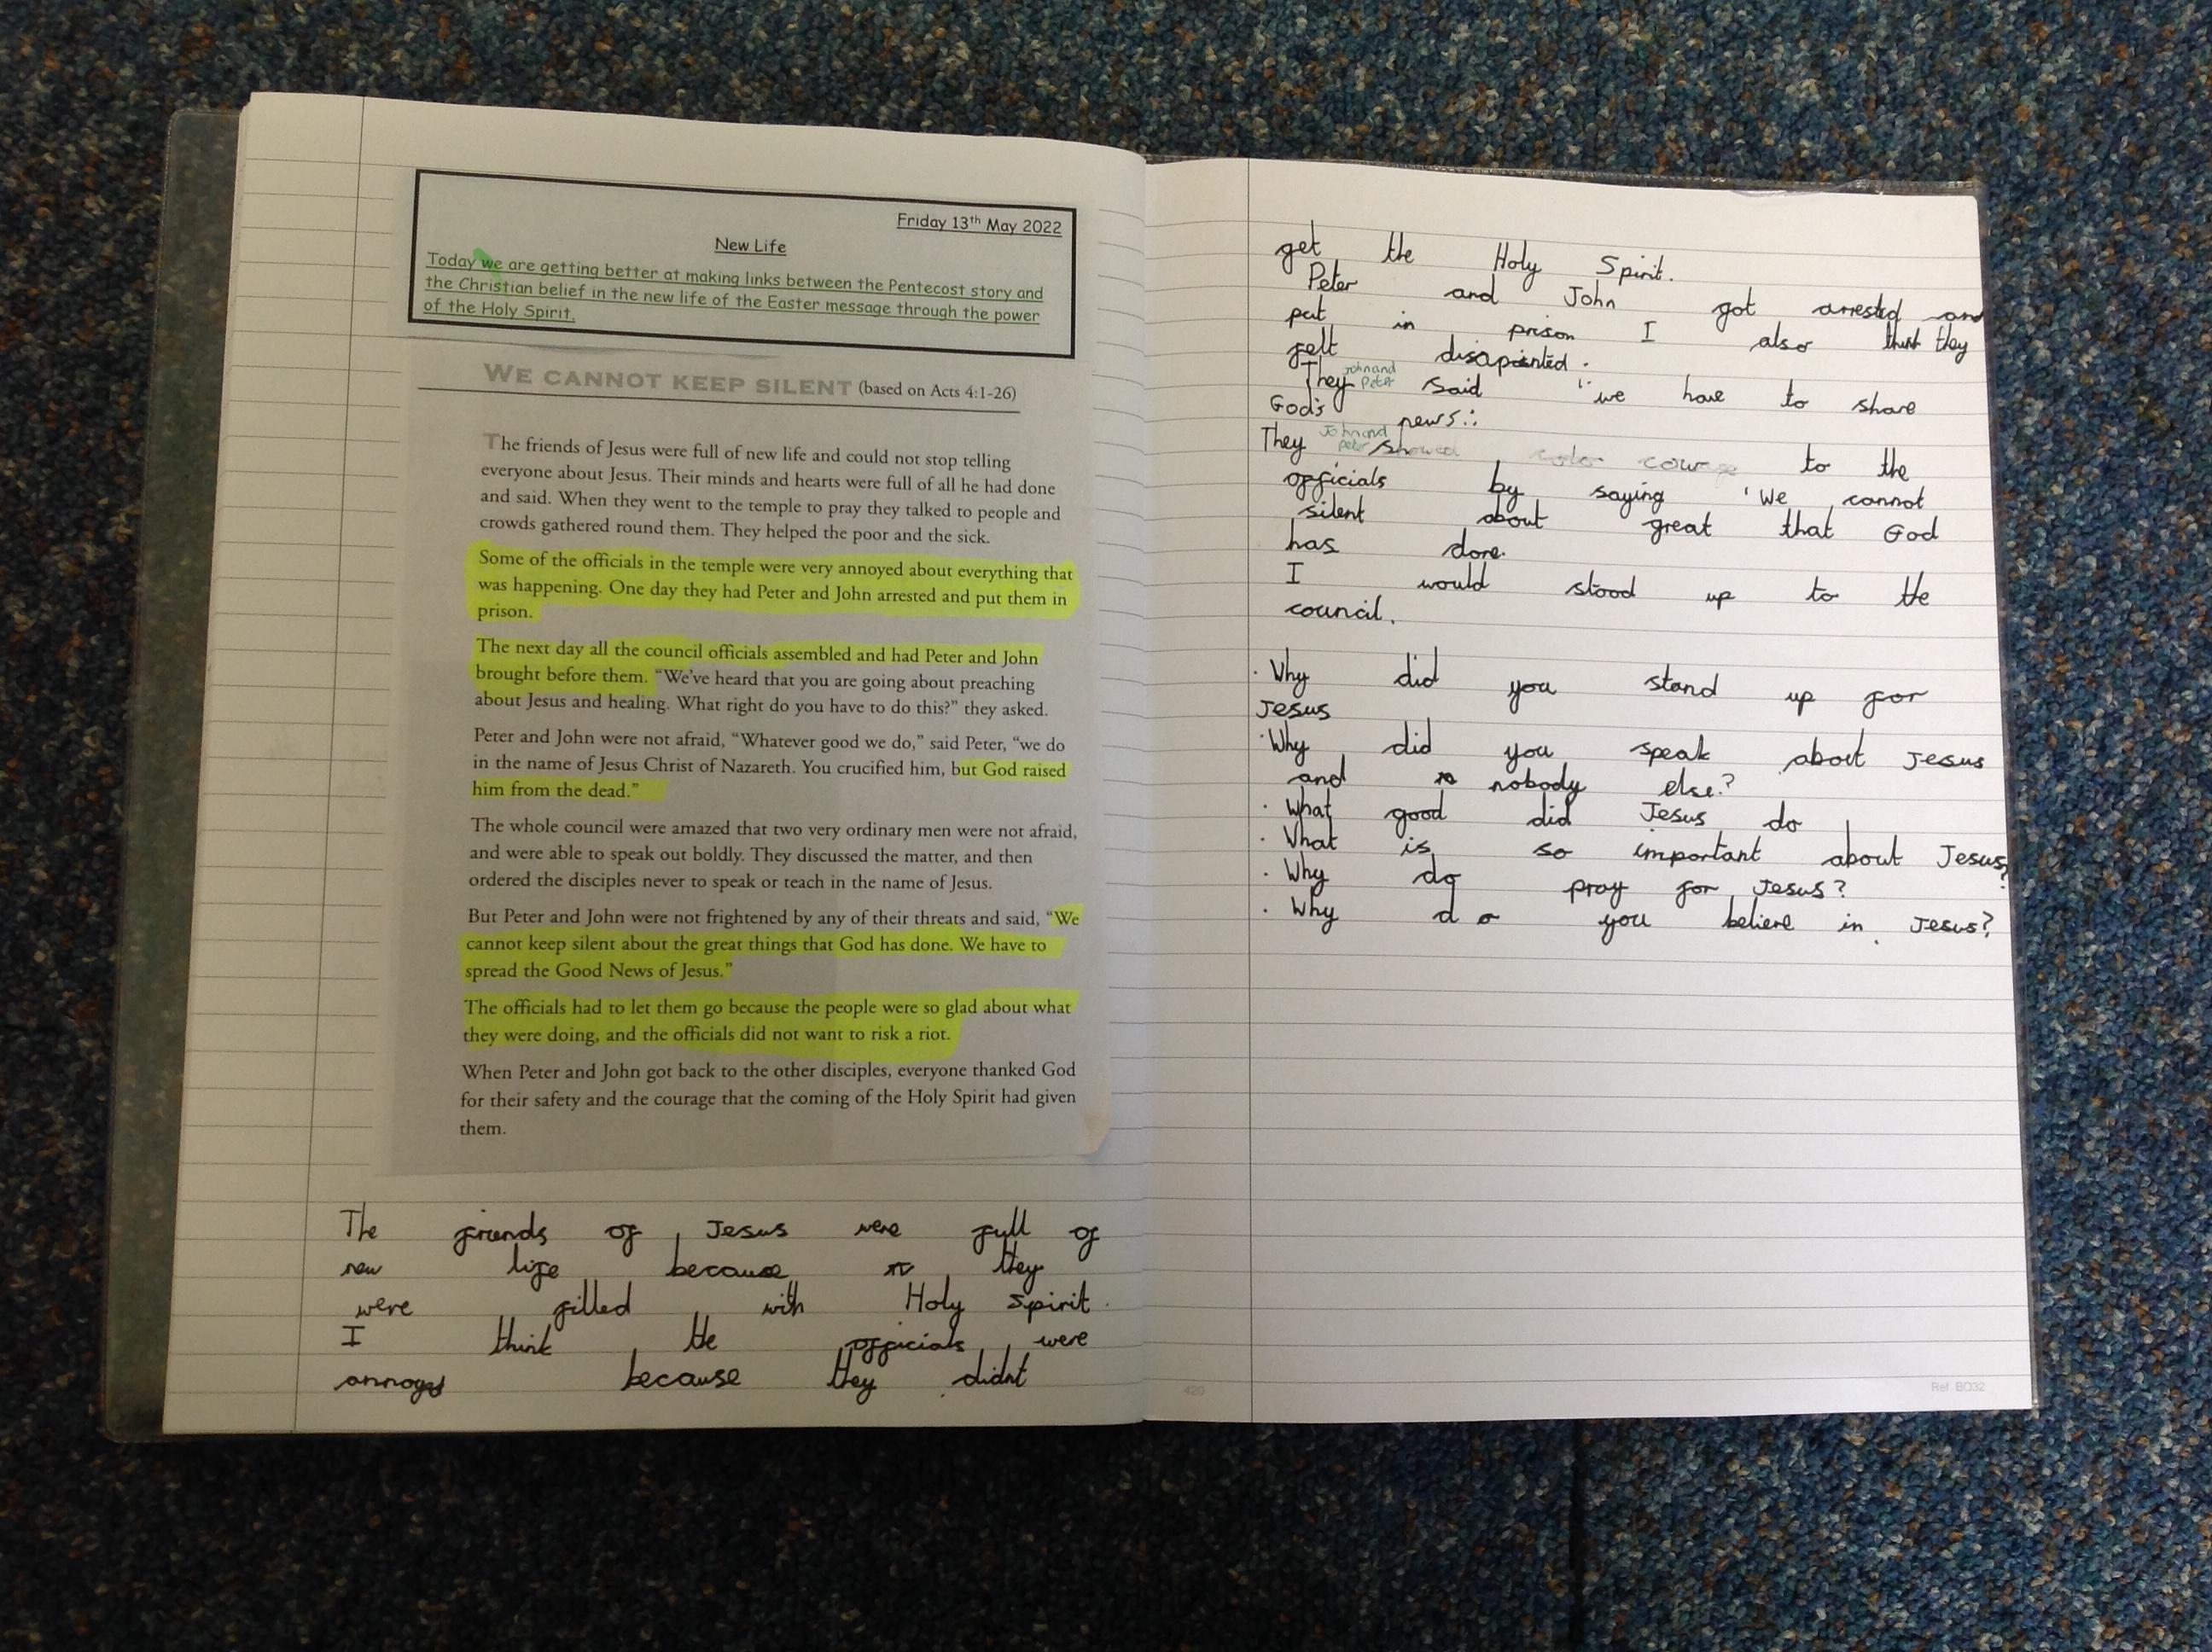 Friday 13th May 2022
New Life
Today we are getting better at making links between the Pentecost story and
the Christian belief in the new life of the Easter message through the power
of the Holy Spirit.
WE CANNOT KEEP SILENT (based on Acts 4:1-26)
The friends of Jesus were full of new life and could not stop telling
everyone about Jesus. Their minds and hearts were full of all he had done
and said. When they went to the temple to pray they talked to people and
crowds gathered round them. They helped the poor and the sick.
Some of the officials in the temple were very annoyed about everything that
was happening. One day they had Peter and John arrested and put them in
prison.
The next day all the council officials assembled and had Peter and John
brought before them. “We’ve heard that you are going about preaching
about Jesus and healing. What right do you have to do this?” they asked.
Peter and John were not afraid, “Whatever good we do,” said Peter, “we do
in the name of Jesus Christ of Nazareth. You crucified him, but God raised
him from the dead.”
The whole council were amazed that two very ordinary men were not afraid,
and were able to speak out boldly. They discussed the matter, and then
ordered the disciples never to speak or teach in the name of Jesus.
But Peter and John were not frightened by any of their threats and said, “We
cannot keep silent about the great things that God has done. We have to
spread the Good News of Jesus.”
The officials had to let them go because the people were so glad about what
they were doing, and the officials did not want to risk a riot.
When Peter and John got back to the other disciples, everyone thanked God
for their safety and the courage that the coming of the Holy Spirit had given
them.
The friends of Jesus were full of
new life because they
were filled with Holy Spirit.
I think the officials were
annoyed because they didnt
get the Holy Spirit.
Peter and John got arrested and
put in prison I also think they
felt disapointed.
They John and Peter said "we have to share
God's news."
They John and peter showed courage to the
officials by saying 'We cannot
silent about great that God
has done.
I would stood up to the
council.
· Why did you stand up for
Jesus
· Why did you speak about Jesus
and nobody else?
· What good did Jesus do
· What is so important about Jesus?
· Why do pray for Jesus?
· Why do you believe in Jesus?
420
Ref BO32